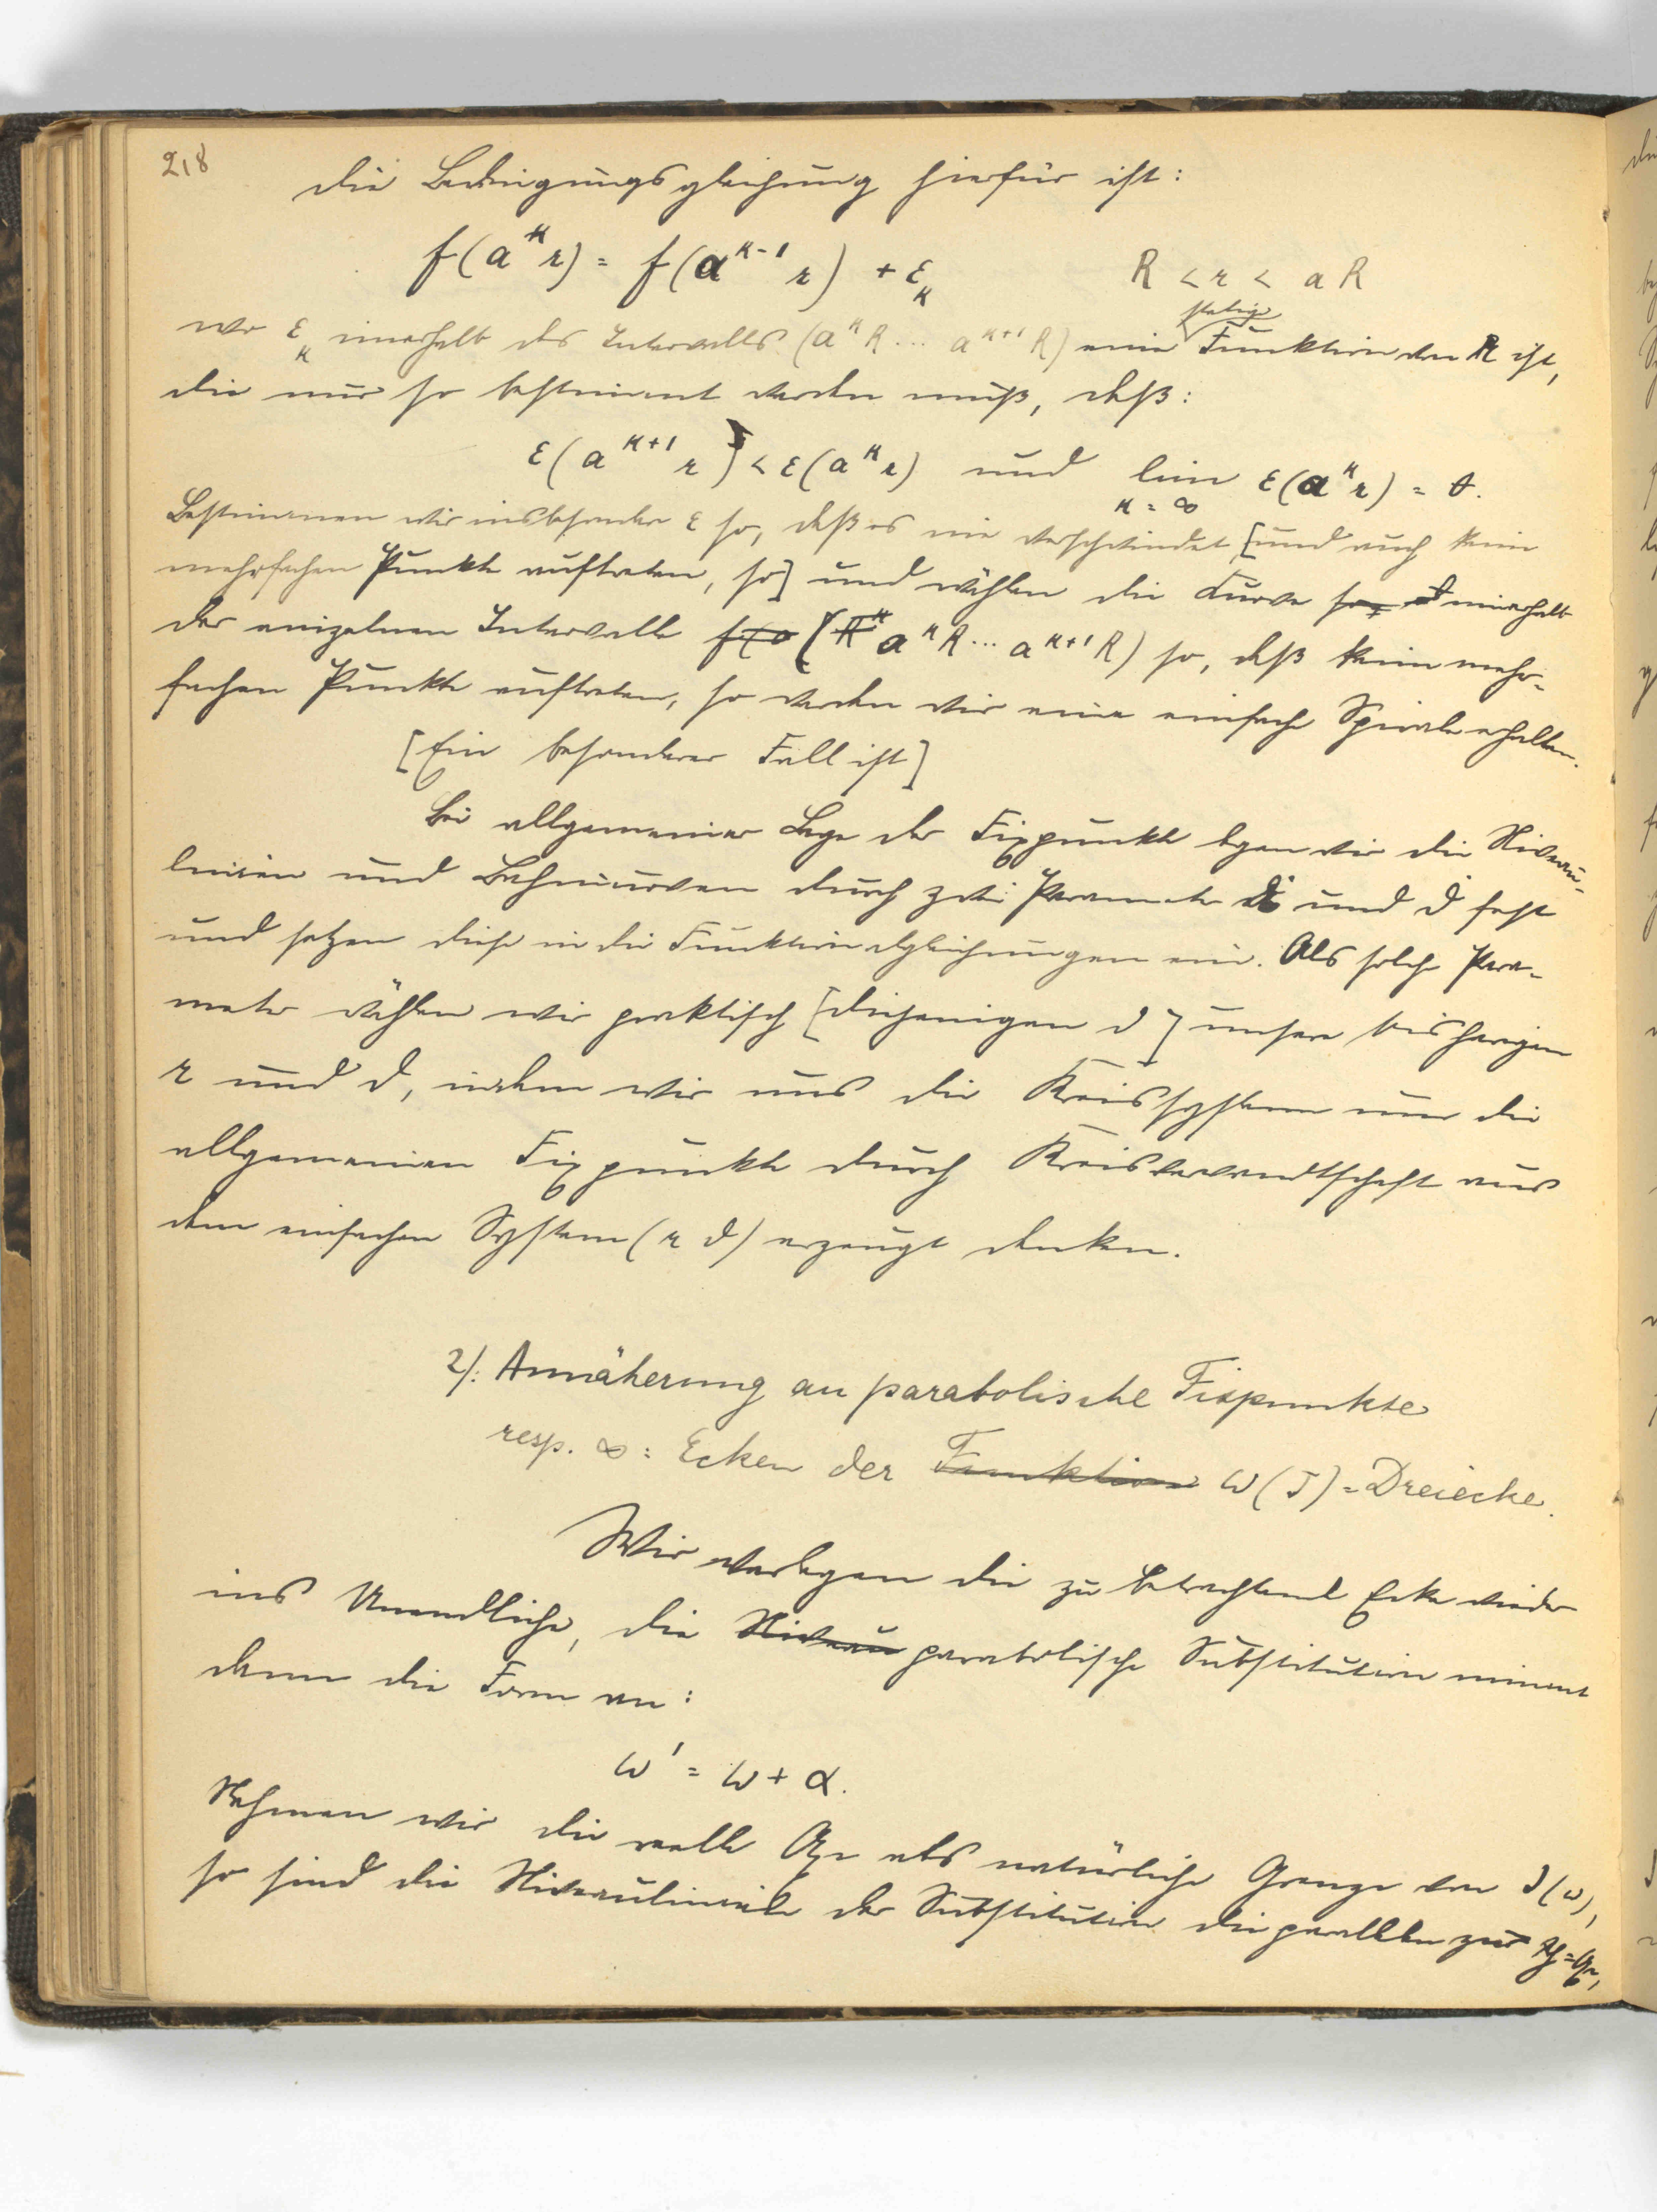 218
Die Bedingungsgleichung hierfür ist:
f(a^κ r) = f(a^{κ-1} r) + ε_κ R < r < a R
stetige
wo ε_κ innerhalb des Intervalls (a^κ R ... a^{κ+1} R) eine Funktion von R ist,
die nur so bestimmt werden muß, daß:
ε(a^{κ+1} r) < ε(a^κ r) und lim ε(a^κ r) = 0.
κ = ∞
Bestimmen wir insbesondere ε so, daß es nie verschwindet [und auch keine
mehrfachen Punkte auftreten, so] und wählen die Kurve so, innerhalb
der einzelnen Intervalle (a^κ R ... a^{κ+1} R) so, daß keine mehr-
fachen Punkte auftreten, so werden wir eine einfache Spirale erhalten.
[Ein besonderer Fall ist]
Bei allgemeiner Lage der Fixpunkte legen wir die Niveau-
linien und Bahnkurven durch zwei Parameter und ϑ fest
und setzen diese in die Funktionalgleichungen ein. Als solche Para-
meter wählen wir praktisch [diejenigen ϑ] unsere bisherigen
r und ϑ, indem wir uns die Kreissysteme um die
allgemeinen Fixpunkte durch Kreisverwandtschaft aus
dem einfachen System (r ϑ) erzeugt denken.
2/: Annäherung an parabolische Fixpunkte
resp. ∞ = Ecken der Funktion ω(J) = Dreiecke.
Wir verlegen die zu betrachtende Ecke wieder
ins Unendliche, die Niveau parabolische Substitution nimmt
dann die Form an:
ω' = ω + α.
Nehmen wir die reelle Axe als natürliche Grenze von J(ω),
so sind die Niveaulinien der Substitution die parallelen zur